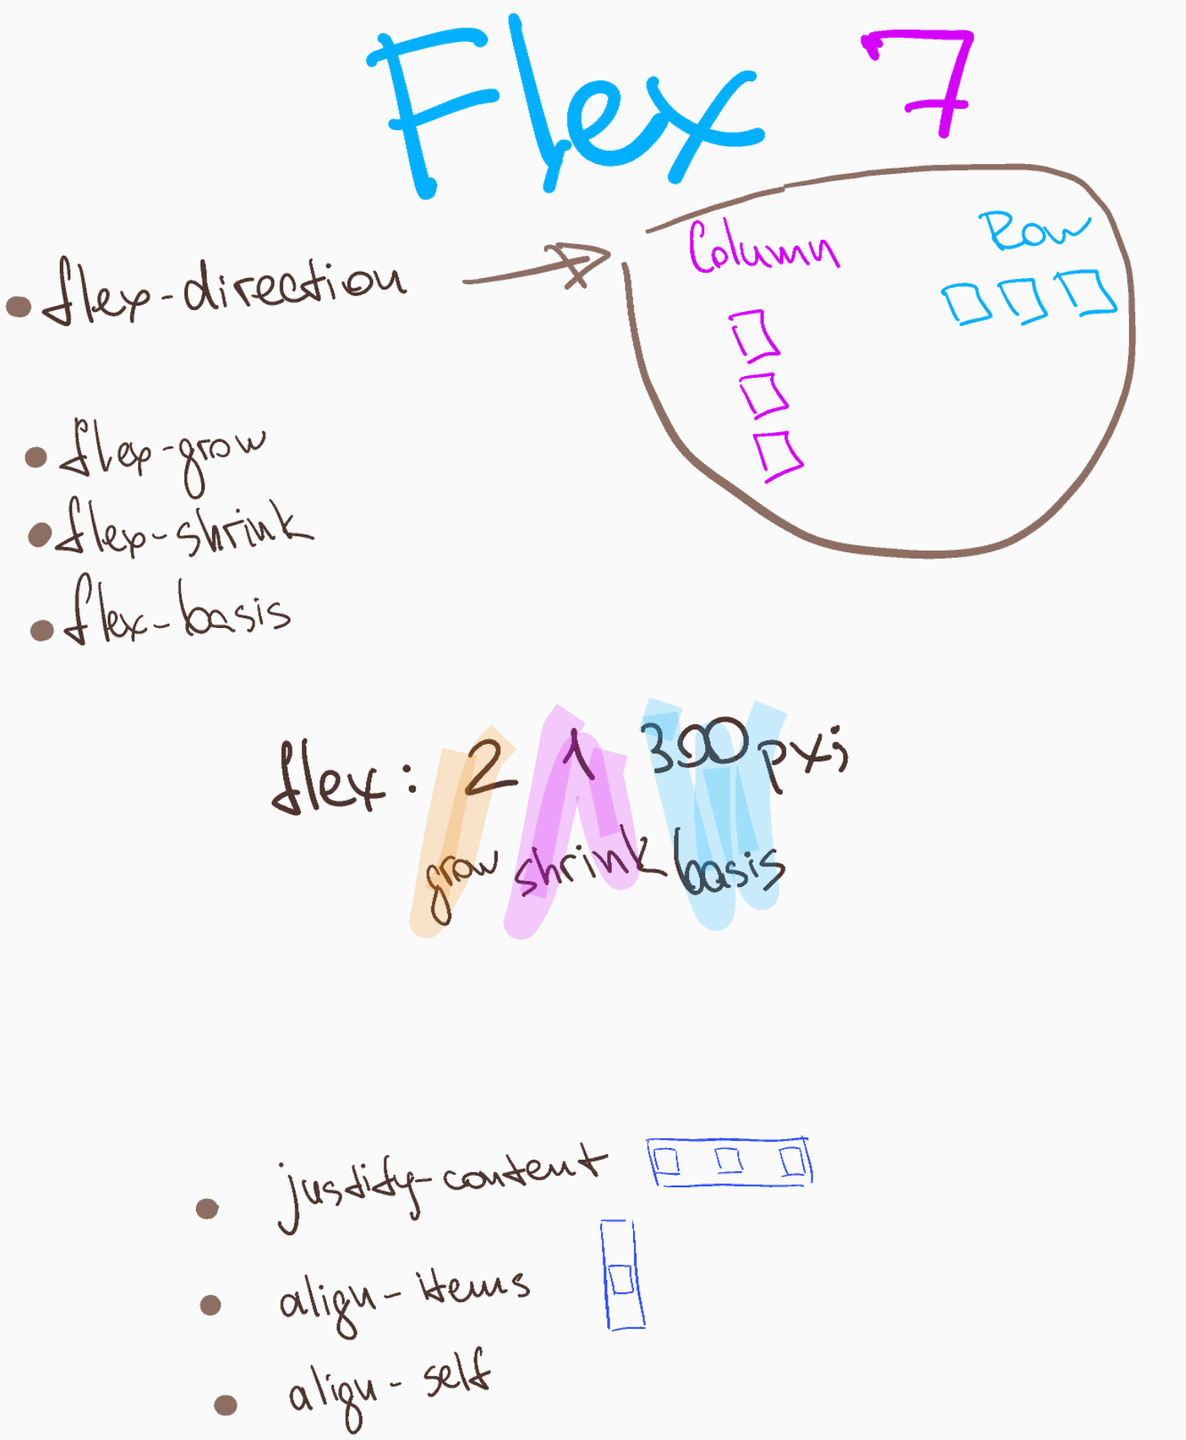 Flex 7
flex-direction
Column
Row
flex-grow
flex-shrink
flex-basis
flex: 2 1 300px;
grow shrink basis
justify-content
align-items
align-self